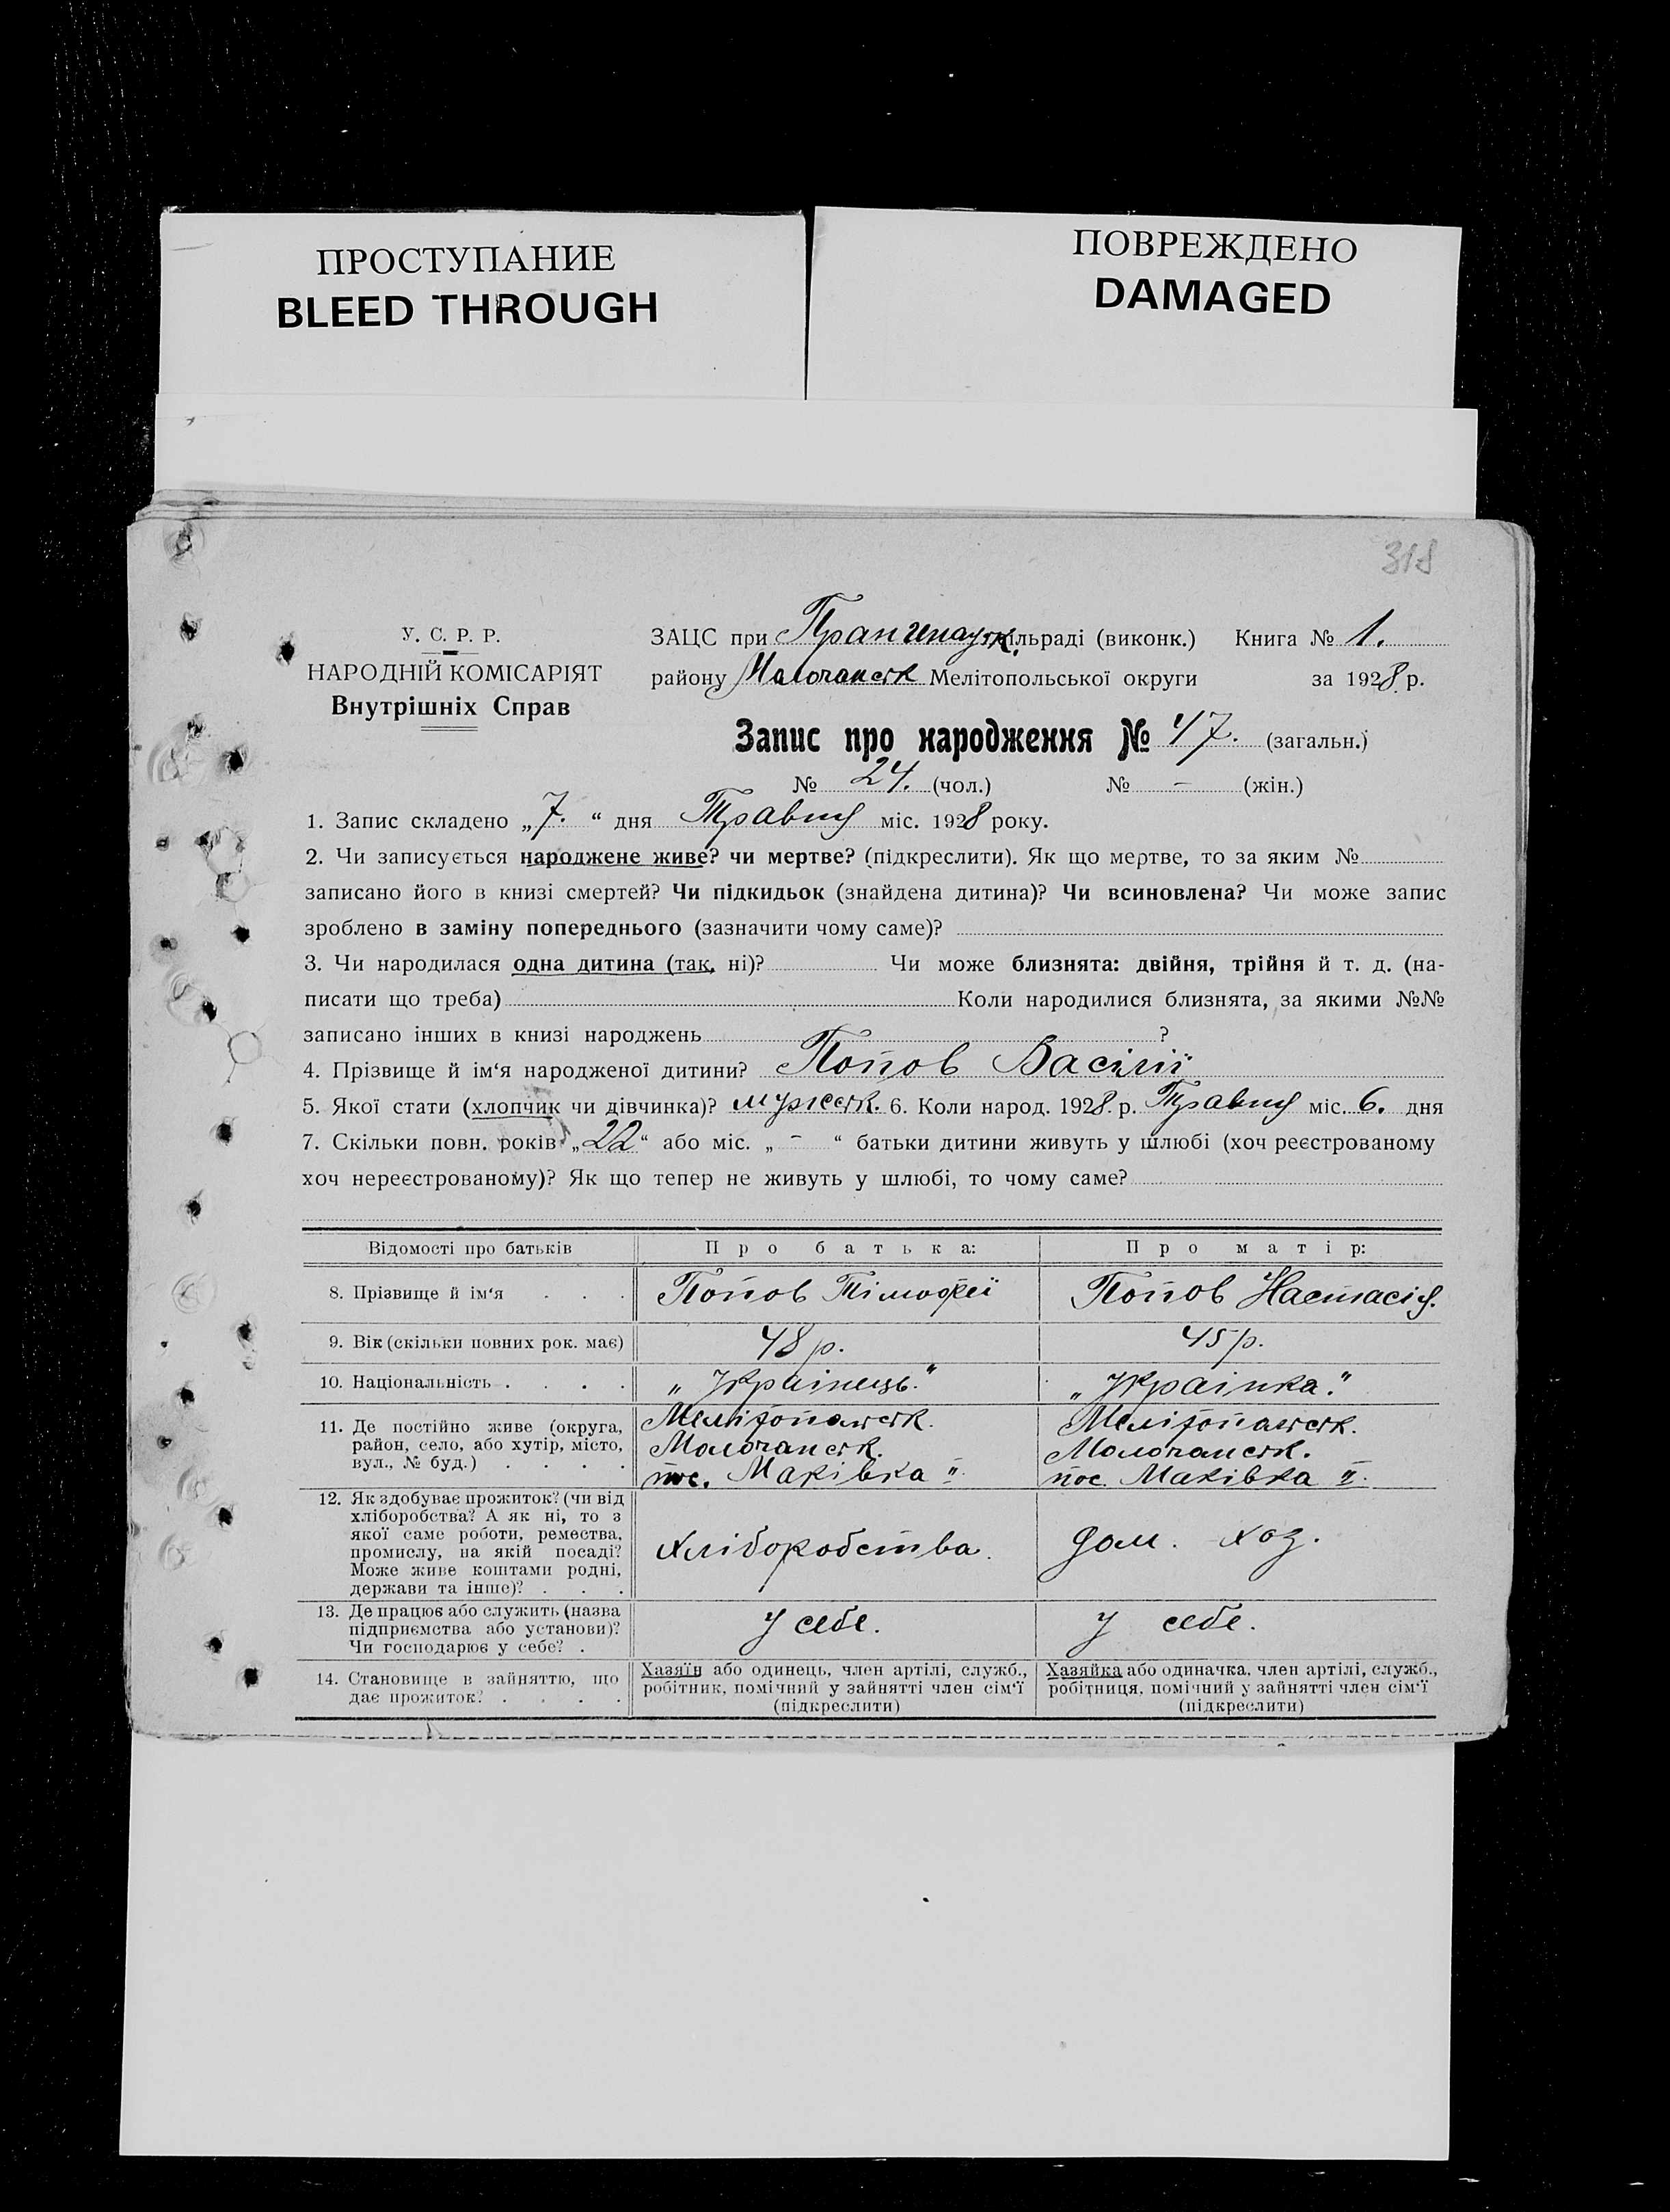 ПРОСТУПАНИЕ
BLEED THROUGH
ПОВРЕЖДЕНО
DAMAGED
318
У. С. Р. Р.
НАРОДНІЙ КОМІСАРІЯТ
Внутрішніх Справ
ЗАЦС при Прангенауськ. сільраді (виконк.) Книга № 1.
району Молочанськ Мелітопольської округи за 1928 р.
Запис про народження № 47. (загальн.)
№ 24. (чол.) № - (жін.)
1. Запис складено „7.“ дня Травня міс. 1928 року.
2. Чи записується народжене живе? чи мертве? (підкреслити). Як що мертве, то за яким №
записано його в книзі смертей? Чи підкидьок (знайдена дитина)? Чи всиновлена? Чи може запис
зроблено в заміну попереднього (зазначити чому саме)?
3. Чи народилася одна дитина (так, ні)? Чи може близнята: двійня, трійня й т. д. (на-
писати що треба) Коли народилися близнята, за якими №№
записано інших в книзі народжень ?
4. Прізвище й ім‘я народженої дитини? Попов Васілії
5. Якої стати (хлопчик чи дівчинка)? мужеськ. 6. Коли народ. 1928. р. Травня міс. 6. дня
7. Скільки повн. років „22“ або міс. „ - “ батьки дитини живуть у шлюбі (хоч реєстрованому
хоч нереєстрованому)? Як що тепер не живуть у шлюбі, то чому саме?
Відомості про батьків Про батька: Про матір:
8. Прізвище й ім‘я . . . Попов Тімофеї Попов Настасія.
9. Вік (скільки повних рок. має) 48 р. 45 р.
10. Національність . . . . „Украінець.“ „Украінка.“
11. Де постійно живе (округа, район, село, або хутір, місто, вул., № буд.) . . . .
Мелітопольськ. Молочанськ. пос. Маківка II.
Мелітопольськ. Молочанськ. пос. Маківка II.
12. Як здобуває прожиток? (чи від хліборобства? А як ні, то з якої саме роботи, ремества, промислу, на якій посаді? Може живе коштами родні, держави та інше)? . . .
хліборобства. дом. хоз.
13. Де працює або служить (назва підприємства або установи)? Чи господарює у себе? .
у себе. у себе.
14. Становище в зайняттю, що дає прожиток? . . . .
Хазяїн або одинець, член артілі, служб., робітник, помічний у зайнятті член сім‘ї (підкреслити)
Хазяйка або одиначка, член артілі, служб., робітниця, помічний у зайнятті член сім‘ї (підкреслити)